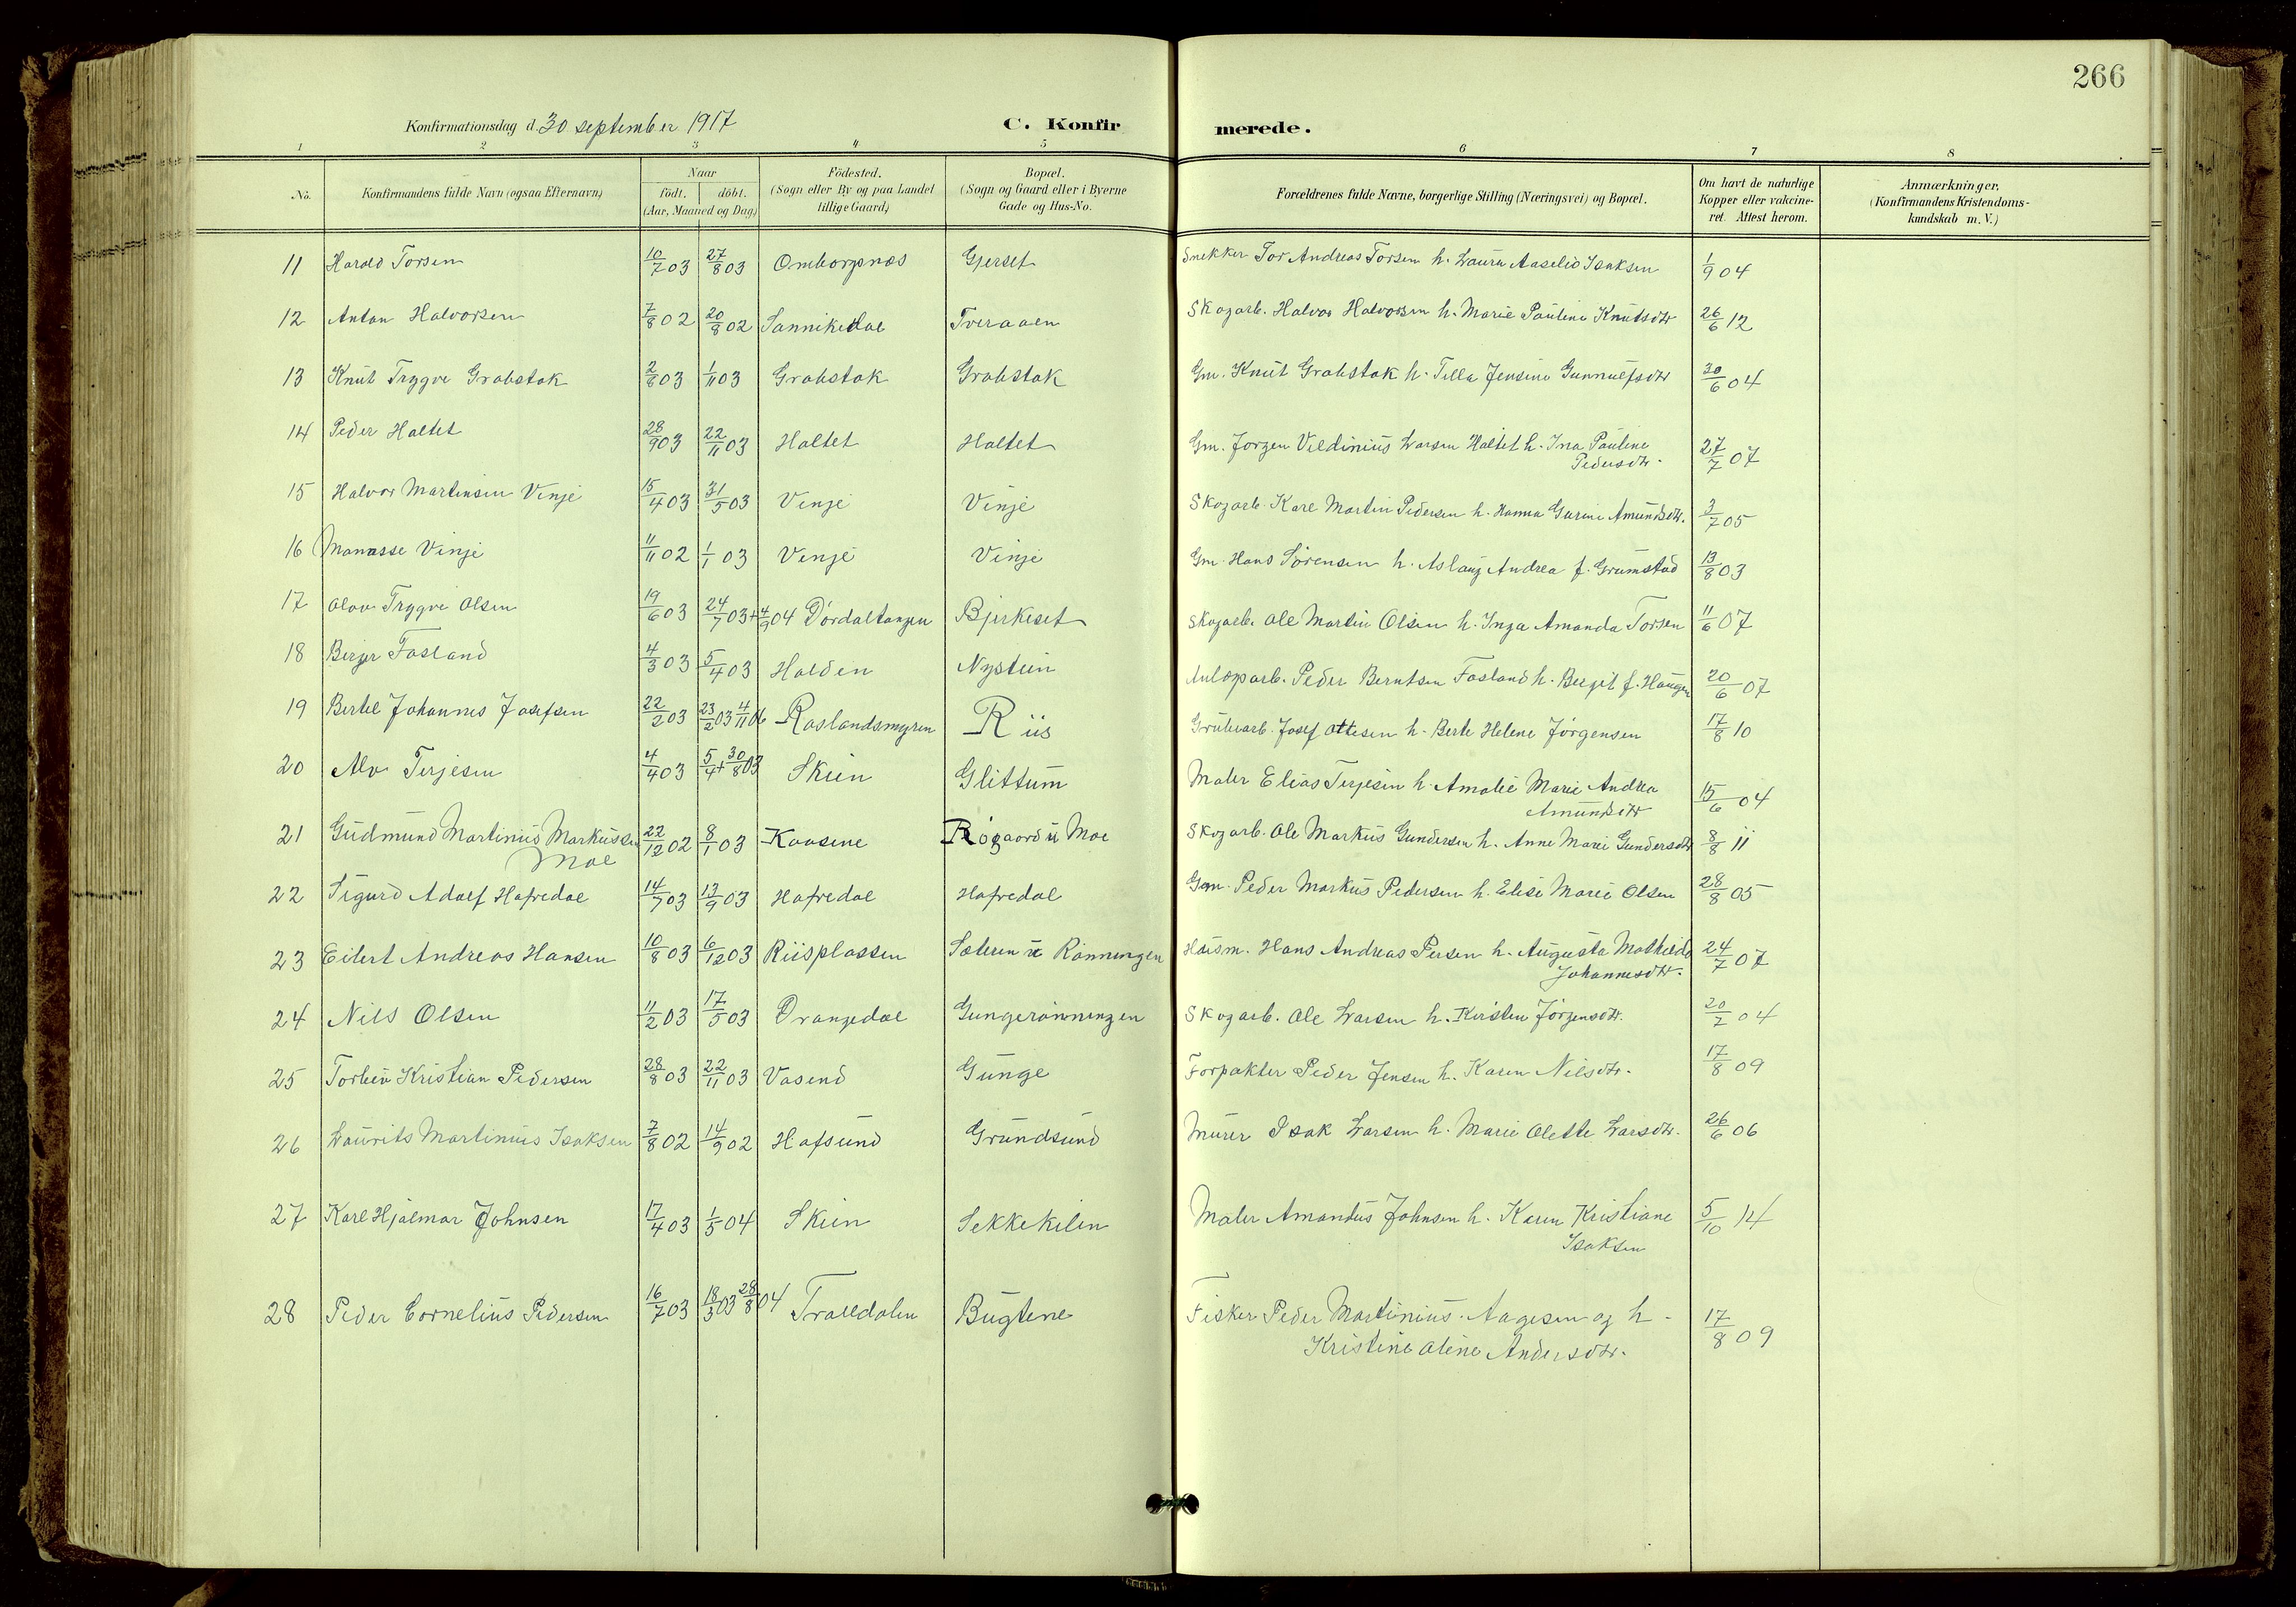 266
Konfirmationsdag d. 30 september 1917 C. Konfirmerede.
1 2 3 4 5 6 7 8
No. Konfirmandens fulde Navn (ogsaa Efternavn) Naar födt. döbt. (Aar, Maaned og Dag.) Födested. (Sogn eller By og paa Landet tillige Gaard.) Bopæl. (Sogn og Gaard eller i Byerne Gade og Hus-No. Forældrenes fulde Navne, borgerlige Stilling (Næringsvei) og Bopæl. Om havt de naturlige Kopper eller vakcineret. Attest herom. Anmærkninger. (Konfirmandens Kristendomskundskab m. V.)
11 Harald Torsen 10/7 03 27/8 03 Omborgsnæs Gjerset Snekker Tor Andreas Torsen h. Laura Isaksen 1/9 04
12 Anton Halvorsen 7/8 02 20/8 02 Sannikedal Tveraaen Skogarb. Halvor Halvorsen h. Marie Pauline Knutsdtr 26/6 12
13 Knut Trygve Grobstok 2/8 03 1/11 03 Grobstok Grobstok Gm. Knut Grobstok h. Tilla Jensine Gunnulfsdtr 30/6 04
14 Peder Haltet 28/9 03 22/11 03 Haltet Haltet Gm. Jørgen Veldinius Larsen Haltet h. Ina Pauline
Pedersdtr. 27/7 07
15 Halvor Martinsen Vinje 15/4 03 31/5 03 Vinje Vinje Skogarb. Karl Martin Pedersen h. Hanna Gurine Amundsdtr. 3/7 05
16 Manasse Vinje 11/11 02 1/1 03 Vinje Vinje Gm. Hans Sørensen h. Aslaug Andrea f. Grumstad 13/8 03
17 Olav Trygve Olsen 19/6 03 24/7 03 + 4/9 04 Dørdaltangen Bjerkeset Skogarb. Ole Martin Olsen h. Inga Amanda Torsen 11/6 07
18 Birger Fosland 4/3 03 5/4 03 Halden Nystein Anlægsarb. Peder Berntsen Fosland h. Bergit f. Haugen 20/6 07
19 Bertel Johannes Josefsen 22/2 03 23/2 03 4/11 06 Roslandsmyren Riis Grubearb. Josef Ottesen h. Berte Helene Jørgensen 17/8 10
20 Alv Terjesen 4/4 03 5/4 + 30/8 03 Skien Glittum Maler Elias Terjesen h. Amalie Marie Andrea
Amundsdtr 15/6 04
21 Gudmund Martinius Markussen
Moe 22/12 02 8/1 03 Kaasene Røgaard u Moe Skogarb. Ole Markus Gundersen h. Anne Marie Gundersdtr 8/8 11
22 Sigurd Adolf Hafredal 14/7 03 13/9 03 Hafredal Hafredal Gm. Peder Markus Pedersen h. Elise Marie Olsen 28/8 05
23 Eilert Andreas Hansen 10/8 03 6/12 03 Riisplassen Sæteren u Rønningen Husm. Hans Andreas Persen h. Augusta Mathilde
Johannesdtr. 24/7 07
24 Nils Olsen 11/2 03 17/5 03 Drangedal Gungerønningen Skogarb. Ole Larsen h. Kirsten Jørgensdtr. 20/7 04
25 Torleiv Kristian Pedersen 28/8 03 22/11 03 Vasend Gunge Forpakter Peder Jensen h. Karen Nilsdtr. 17/8 09
26 Laurits Martinius Isaksen 7/8 02 14/9 02 Hafsund Grundsund Murer Isak Larsen h. Marie Olette Larsdtr. 26/6 06
27 Karl Hjalmar Johnsen 17/4 03 1/5 04 Skien Sekkekilen Maler Amandus Johnsen h. Karen Kristiane
Isaksen 5/10 14
28 Peder Cornelius Pedersen 16/7 03 18/3 03 28/8 04 Traledalen Bugtene Fisker Peder Martinius Aagesen og h.
Kristine Oline Andersdtr. 17/8 09